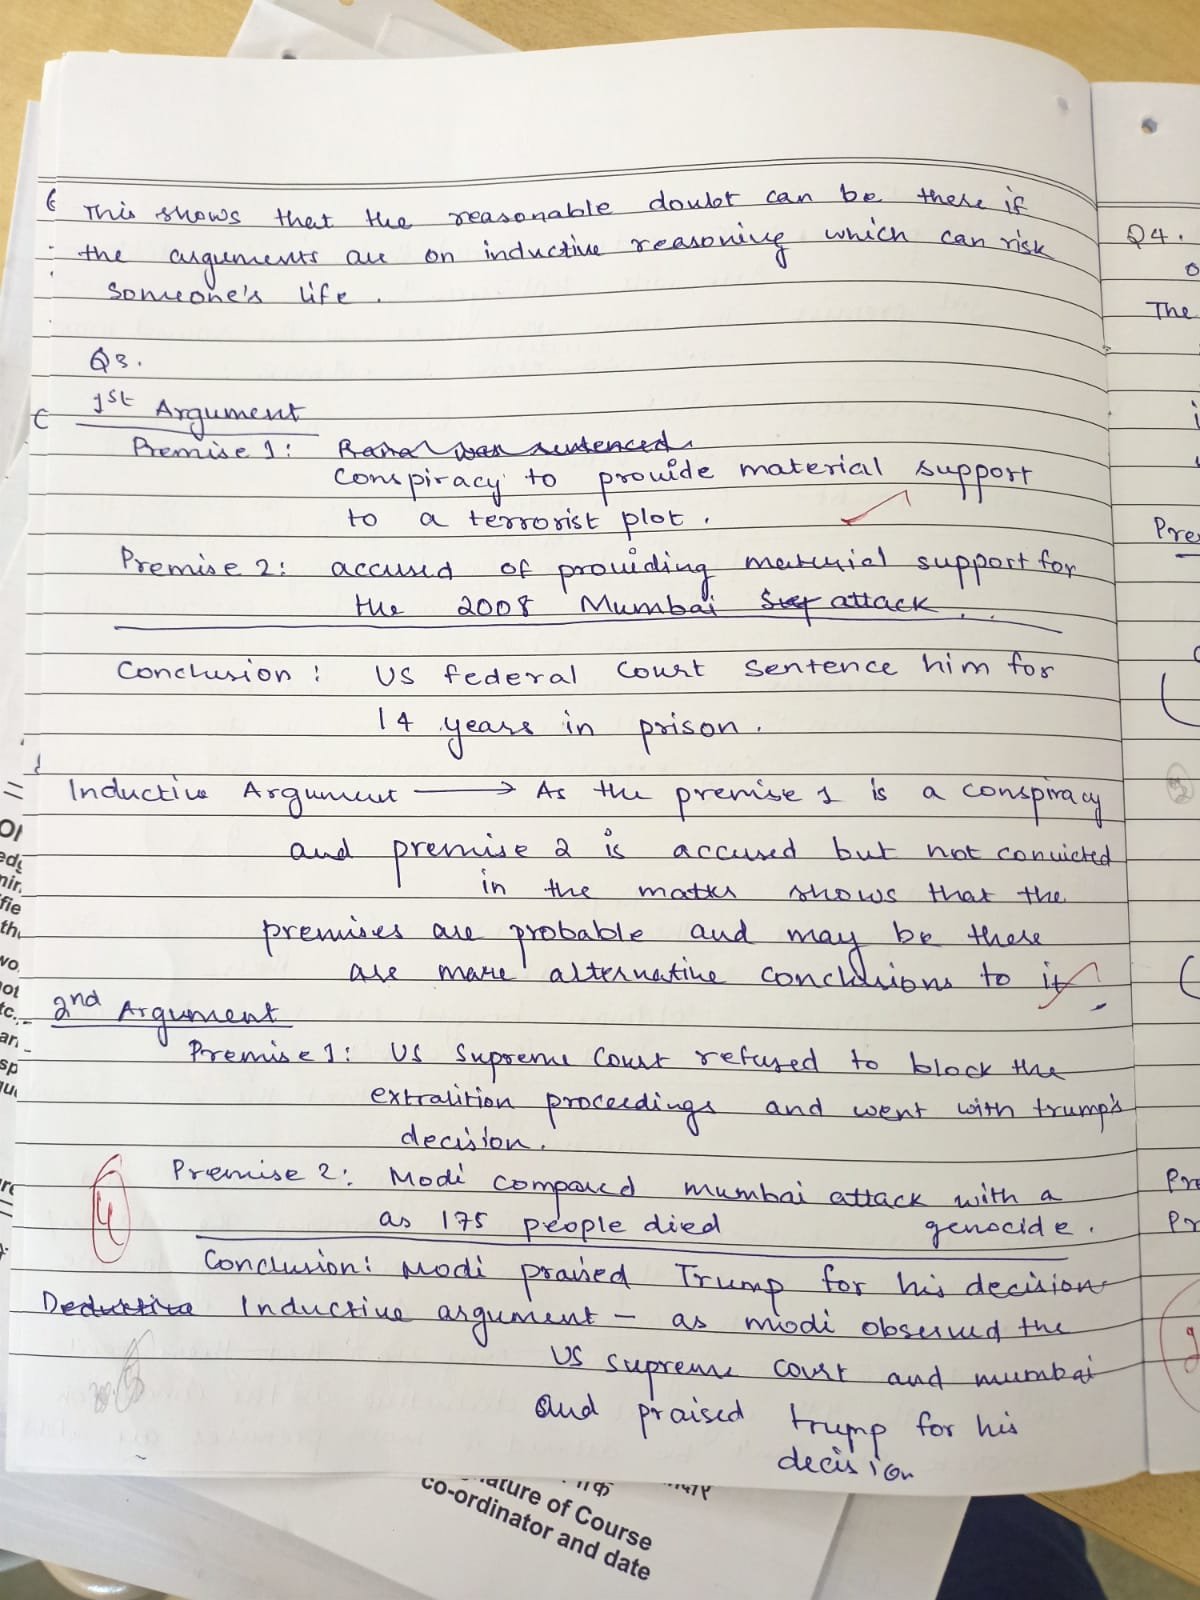 This shows that the reasonable doubt can be there if
the arguments are on inductive reasoning which can risk
someone's life.
Q3.
1st Argument
Premise 1: Rana was sentenced
conspiracy to provide material support
to a terrorist plot.
Premise 2: accused of providing material support for
the 2008 Mumbai attack.
Conclusion: US federal court sentence him for
14 years in prison.
Inductive Argument → As the premise 1 is a conspiracy
and premise 2 is accused but not convicted
in the matter shows that the
premises are probable and may be there
are more alternative conclusions to it
2nd Argument
Premise 1: US Supreme Court refused to block the
extralition proceedings and went with trump's
decision.
Premise 2: Modi compared mumbai attack with a
as 175 people died genocide.
4
Conclusion: Modi praised Trump for his decision
Deductive Inductive argument – as modi observed the
US supreme court and mumbai
and praised trump for his
decision
Q4.
The
Pre
Pre
Pr
ature of Course
co-ordinator and date